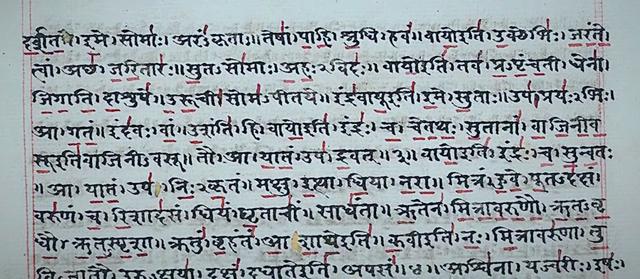 दर्शत । इमे । सोमाः । अरंऽकृताः ॥ तेषां । पाहि । श्रुधि । हवं ॥ वायो इति । उक्थेभिः । जरंते
त्वां । अच्छ । जरितारः ॥ सुतऽसोमाः । अहःऽविदः ॥ वायो इति । तव । प्रऽपृंचती । धेना
जिगाति । दाशुषे ॥ उरूची । सोमऽपीतये ॥ इंद्रवायू इति । इमे । सुताः ॥ उप । प्रयःऽभिः ।
आ । गतं ॥ इंदवः । वां । उशंति । हि ॥ वायो इति । इंद्रः । च । चेतथः । सुतानां । वाजिनीव
सू इति वाजिनीऽवसू ॥ तौ । आ । यातं । उप । द्रवत् ॥ ३ ॥ वायो इति । इंद्रः । च । सुन्वतः
॥ आ । यातं । उप । निःऽकृतं ॥ मक्षु । इत्था । धिया । नरा ॥ मित्रं । हुवे । पूतऽदक्षं
वरुणं । च । रिशादसं ॥ धियं । घृताचीं । साधंता ॥ ऋतेन । मित्रावरुणौ । ऋतऽवृ
धौ । ऋतऽस्पृशा ॥ क्रतुं । बृहंतं । आशाथे इति ॥ कवी इति । नः । मित्रावरुणा । तु
विऽजातौ । उरुऽक्षया ॥ दक्षं । दधाते इति । अपसं ॥ ४ ॥ अश्विना । यज्वरीः । इषः ।